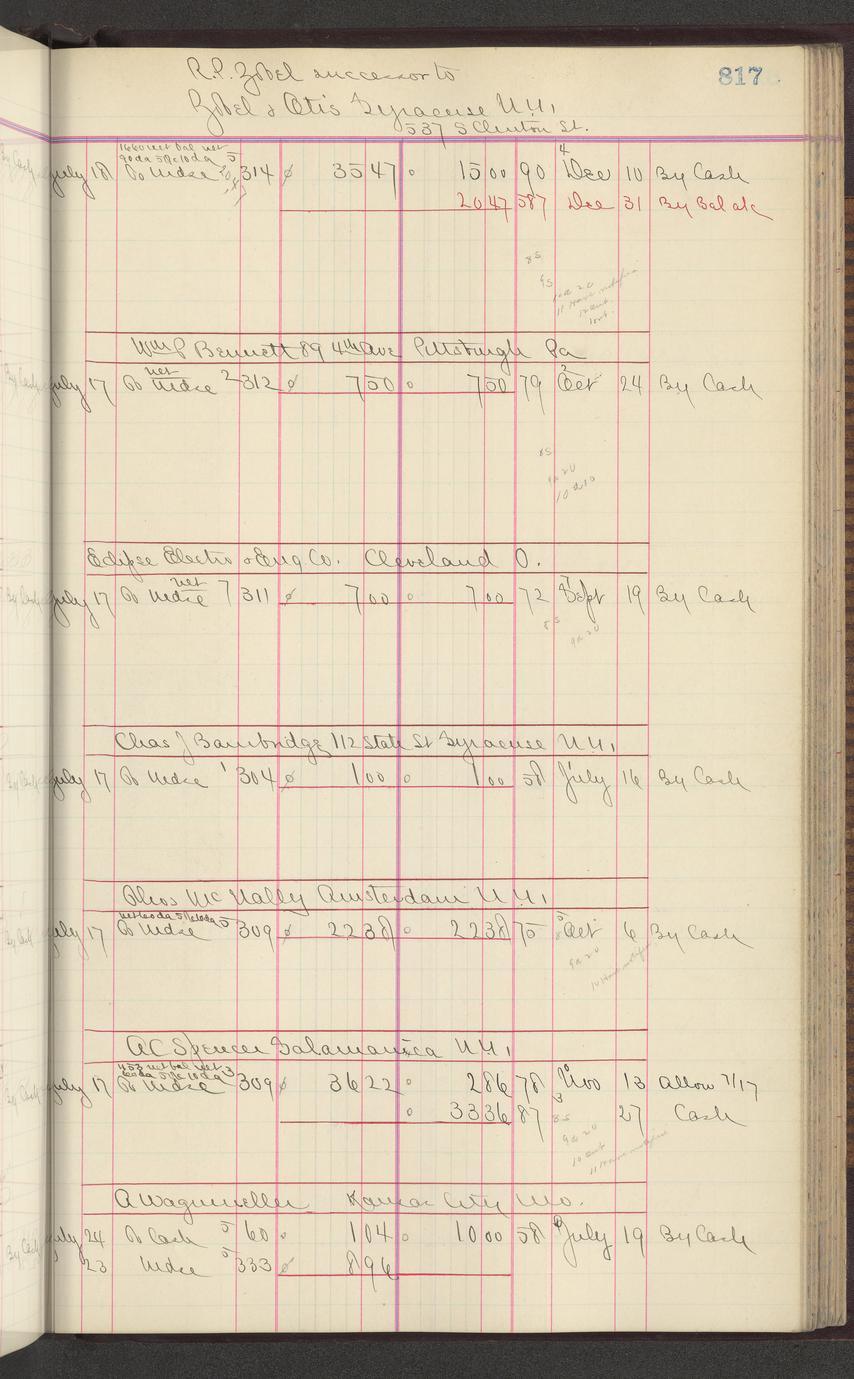 817
R.P. Zobel successor to
Zobel & Otis Syracuse N.Y.
537 S Clinton St.
1660 net bal net
90da 5% 10da 5
July 18 To Mdse 314 3547 1500 90 Dec 10 By Cash
2047 587 Dec 31 By Bal
Wm P Bennett 89 4th Ave Pittsburgh Pa
net
July 17 To Mdse 2 312 750 750 79 Oct 24 By Cash
Eclipse Electro & Eng. Co. Cleveland O.
net
July 17 To Mdse 7 311 700 700 72 Sept 19 By Cash
Chas J Bambridge 112 State St Syracuse N.Y.
July 17 To Mdse 1 304 100 100 58 July 16 By Cash
Thos McNally Amsterdam N.Y.
net 60da 5% 10da 5
July 17 To Mdse 309 2238 2238 75 Oct 6 By Cash
A C Spencer Salamanca N.Y.
453 net bal net
60da 5% 10da 3
July 17 To Mdse 309 3622 286 78 Nov 13 Allow 7/17
3336 87 27 Cash
A Wagenweller Kansas City Mo.
July 24 To Cash 5 60 104 1000 58 July 19 By Cash
23 Mdse 5 333 896